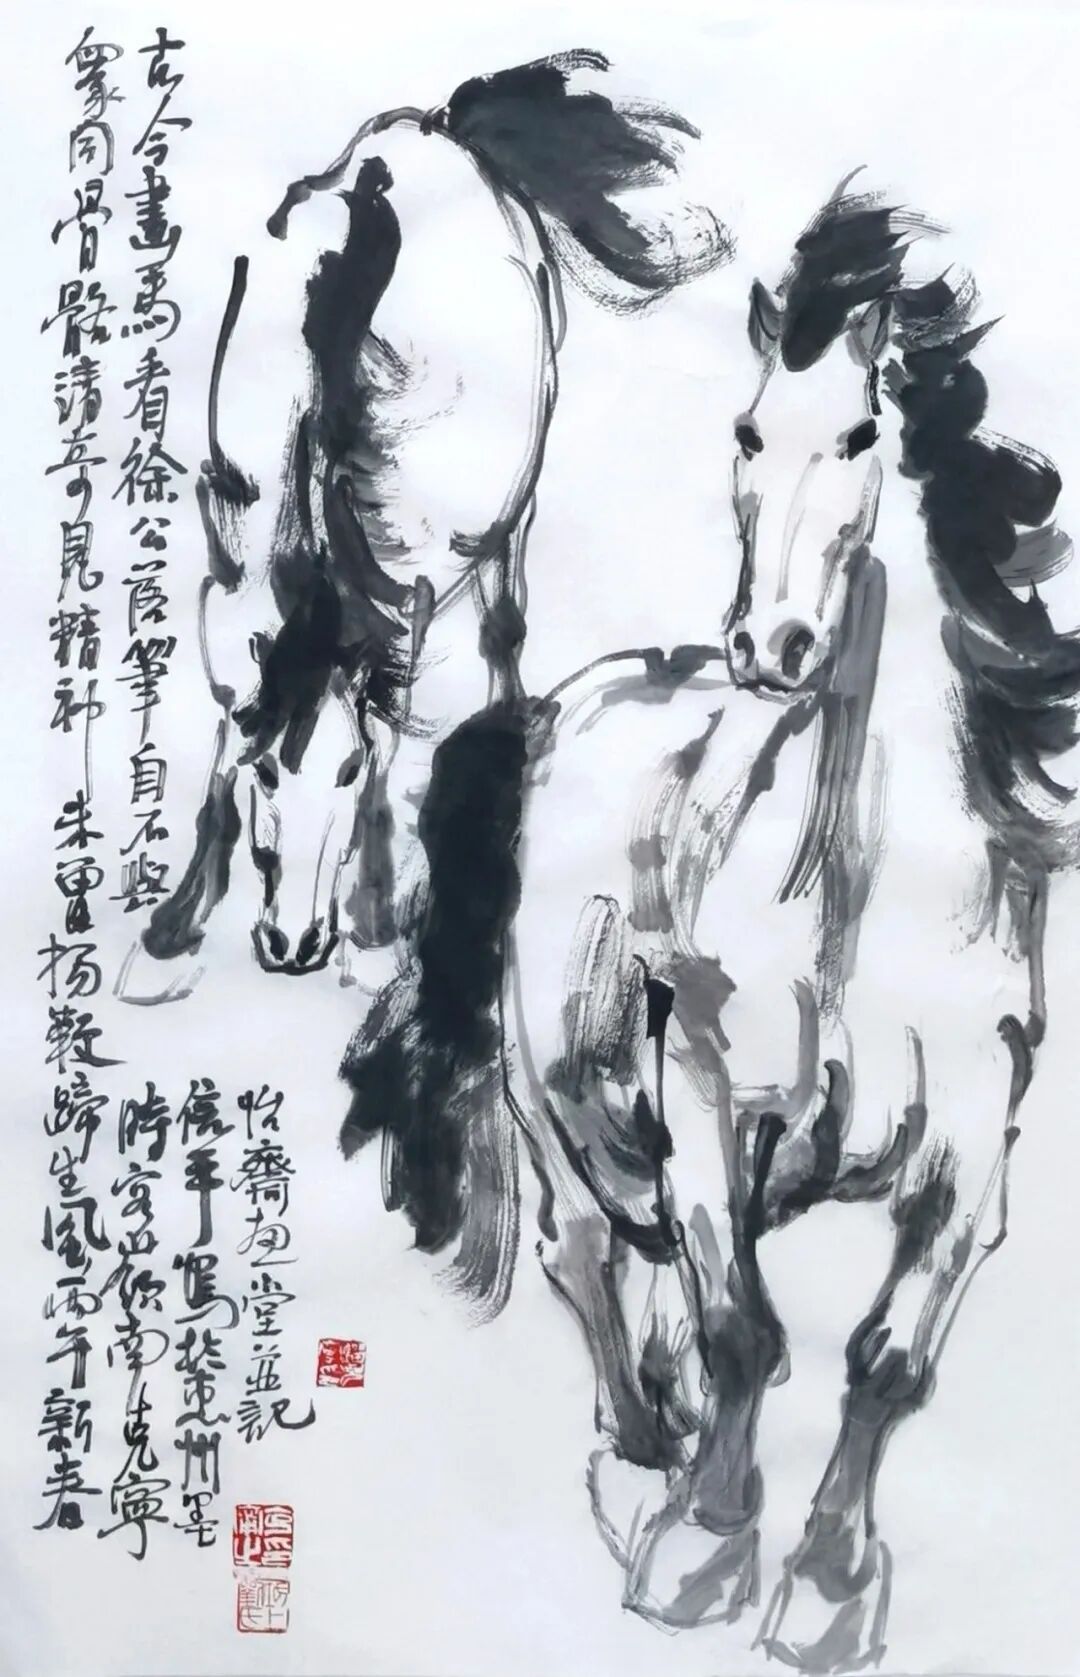 古今画馬看徐公落筆自不與
眾同骨骼清奇見精神未曾揚鞭蹄生風丙午新春
時客嶺南克寧
信手寫於惠州墨
怡齋畫堂並記